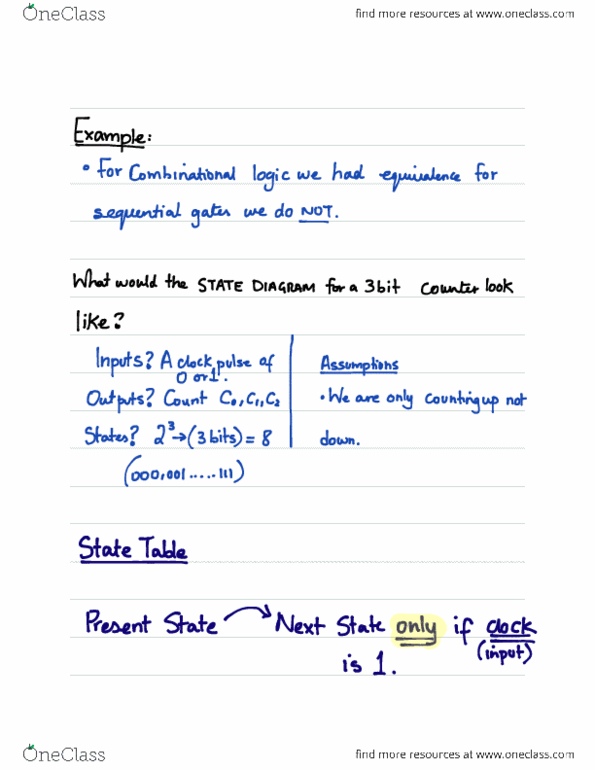 OneClass
find more resources at www.oneclass.com
Example:
• For Combinational logic we had equivalence for
sequential gates we do NOT.
What would the STATE DIAGRAM for a 3bit Counter look
like?
Inputs? A clock pulse of
0 or 1.
Outputs? Count C0, C1, C2
States? 2³→(3 bits) = 8
(000,001.....111)
Assumptions
• We are only counting up not
down.
State Table
Present State → Next State only if clock
(input)
is 1.
OneClass
find more resources at www.oneclass.com